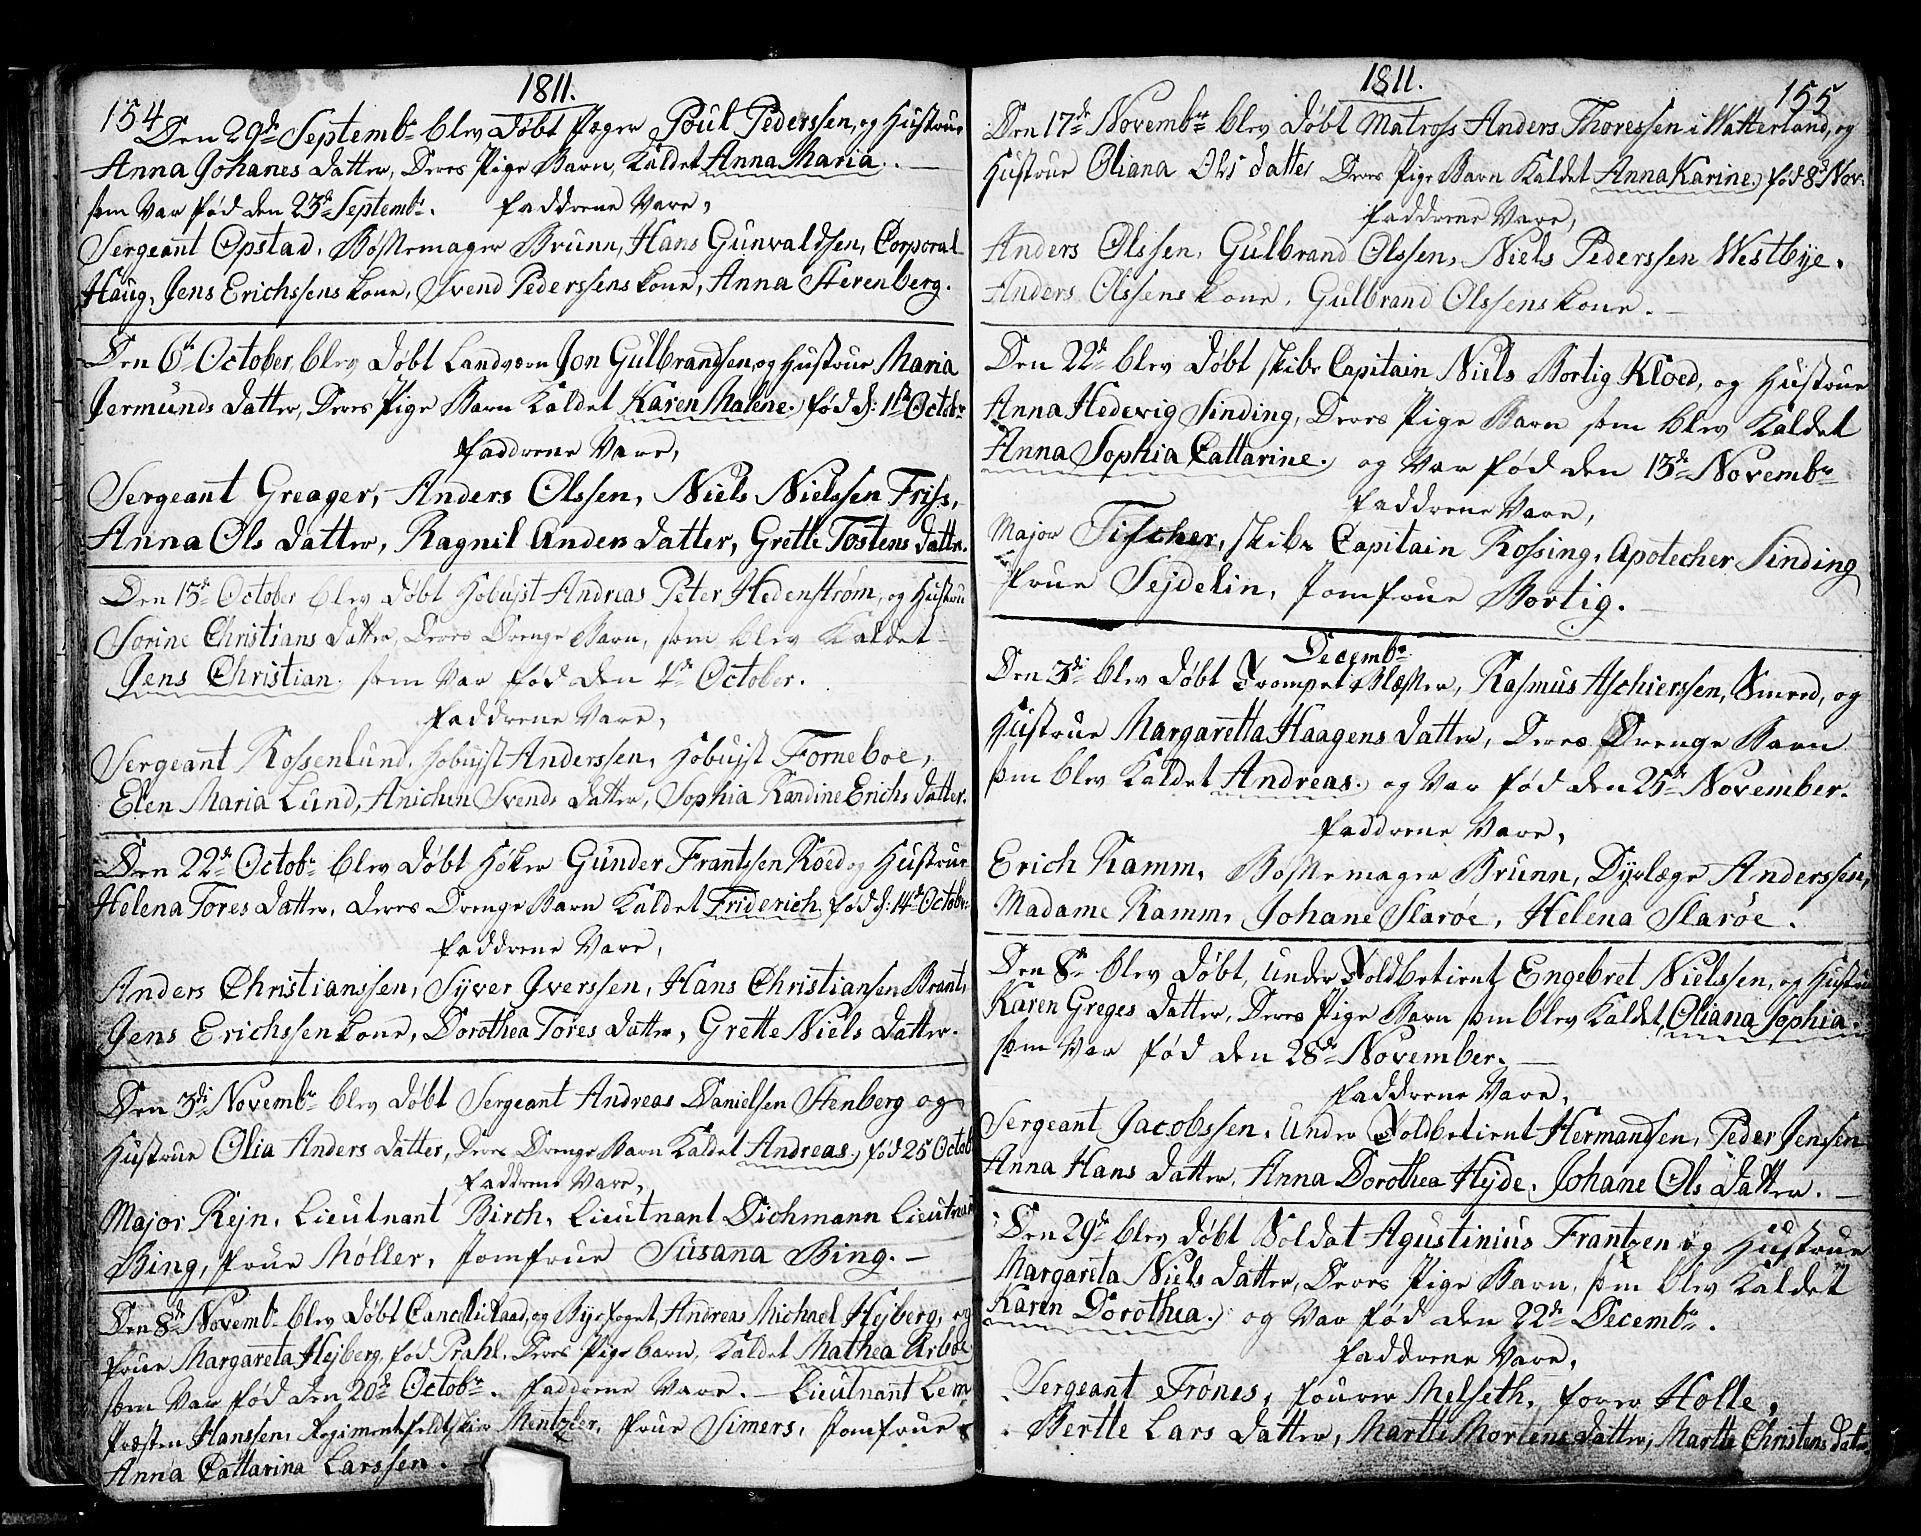 1811.
154
Den 29de Septembr blev Døbt Jæger Poul Pederssen, og Hustrue
Anna Johanes Datter, Deres Pige Barn, Kaldet Anna Maria.
som Var fød den 23de Septembr. Faddrene Vare,
Sergeant Opstad, Bøssemager Brunn, Hans Gunvaldsen, Corporal
Haug, Jens Erichssens Kone, Svend Pederssens Kone, Anna Sterenberg.
Den 6te October blev Døbt Landværn Jon Gulbrandsen, og Hustrue Maria
Jermunds Datter, Deres Pige Barn Kaldet Karen Malene. fød d: 1ste Octobr
Faddrene Vare,
Sergeant Greager, Anders Olssen, Niels Nielssen Friss,
Anna Ols Datter, Ragnil Anders Datter, Grette Tostens Datter.
Den 13de October blev Døbt Hobuist Andreas Peter Hedenstrøm, og Hustrue
Sorine Christians Datter, Deres Drenge Barn, som blev Kaldet
Jens Christian. som Var fød den 4de October.
Faddrene Vare,
Sergeant Rossenlund, Hobuist Anderssen, Hobuist Forneboe,
Elen Maria Lund, Anichen Svends Datter, Sophia Randine Erichs Datter.
Den 22de Octobr blev Døbt Høker Gunder Frantssen Röed og Hustrue
Helena Tores Datter, Deres Drenge Barn Kaldet Friderich, fød d: 14de Octobr.
Faddrene Vare,
Anders Christianssen, Syver Iverssen, Hans Christiansen Brant,
Jens Erichssen Kone, Dorothea Tores Datter, Grette Niels Datter.
Den 3di Novembr blev Døbt Sergeant Andreas Danielsen Stenberg og
Hustrue Olia Anders Datter, Deres Drenge Barn Kaldet Andreas. fød 25 Octob
Faddrene Vare,
Major Rejn, Lieutnant Birch, Lieutnant Dichmann Lieutnan
Bing, Frue Møller, Jomfrue Susana Bing.
Den 8de Novembr blev Døbt Cancelli Raad, og Bye foget, Andreas Michael Hejberg, og
Frue Margareta Hejberg, fød Prahl, Deres Pige barn, Kaldet Mathea Arboe
som Var fød den 20de Octobr. Faddrene Vare. Lieutnant Lem
Præsten Hanssen, Regimentsfeltskier Mentzler, Frue Simers, Jomfrue
Anna Cattarina Larssen.
1811.
155
Den 17de Novembr blev Døbt Matross Anders Thoressen i Watterland, og
Hustrue Oliana Ols Datter Deres Pige Barn Kaldet Anna Karine. fød 8de Nov:
Faddrene Vare,
Anders Olssen, Gulbrand Olssen, Niels Pederssen Westbye.
Anders Olssens Kone, Gulbrand Olssens Kone.
Den 22de blev Døbt skibs Capitain Niels Bortig Kloed, og Hustrue
Anna Hedevig Sinding, Deres Pige Barn som blev Kaldet
Anna Sophia Cattarine. og Var fød den 13de Novembr
Faddrene Vare,
Major Fischer, skibs Capitain Rossing, Apotecher Sinding
Frue Sejdelin, Jomfrue Bortig.
Decembr
Den 3di blev Døbt Trompet Blæsser, Rasmus Aschierssen, Smeed, og
Hustrue Margaretta Haagens Datter, Deres Drenge Barn
som blev Kaldet Andreas. og Var fød den 25de November.
Faddrene Vare,
Erich Ramm, Bøssemager Brunn, Dyrlæge Anderssen,
Madame Ramm, Johane Slarøe, Helena Slarøe.
Den 8de blev Døbt, Under Toldbetient Engebret Nielssen, og Hustrue
Karen Greges Datter, Deres Pige Barn som blev Kaldet, Oliana Sophia.
som Var fød den 28de November.
Faddrene Vare,
Sergeant Jacobssen, Under Toldbetient Hermandsen, Peder Jenssen
Anna Hans Datter, Anna Dorothea Hejde, Johane Ols Datter.
Den 29de blev Døbt Soldat Agustinius Frantzen og Hustrue
Margareta Niels Datter, Deres Pige Barn, som blev Kaldet
Karen Dorothea. og Var fød den 22de Decembr.
Faddrene Vare,
Sergeant Frönes, Fourer Melseth, forer Holle,
Bertte Lars Datter, Martte Mortens Datter, Martte Christens Datter